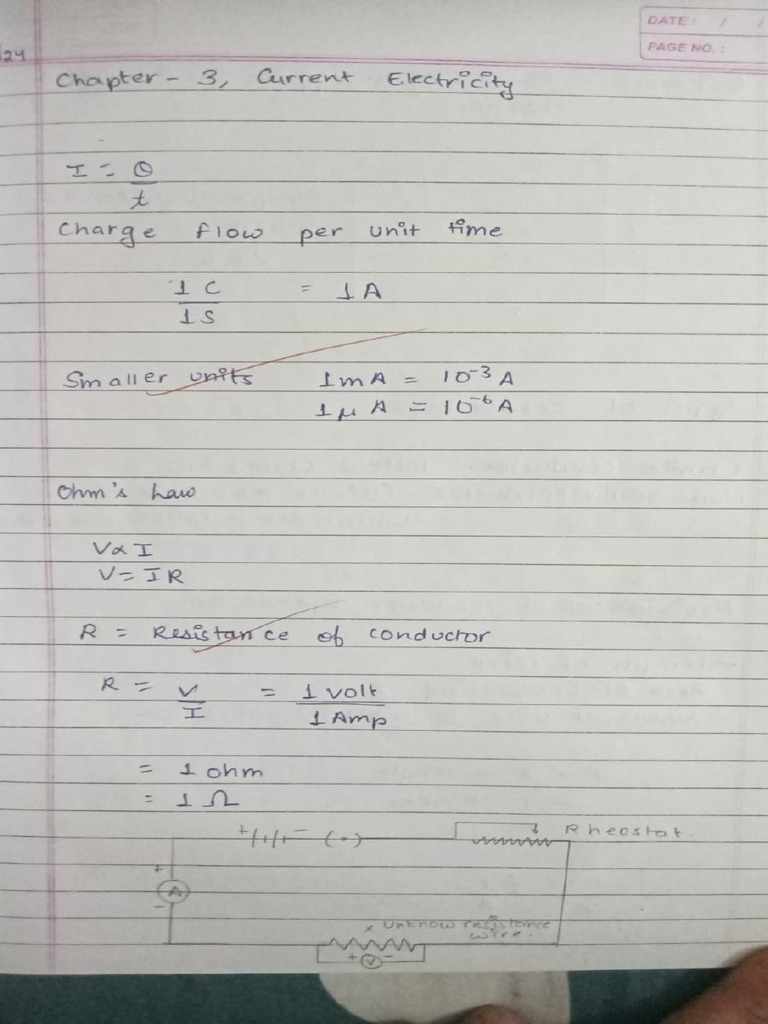 DATE: / /
PAGE NO.:
/24
Chapter - 3, Current Electricity
I = Q
t
Charge flow per unit time
1 C = 1 A
1 S
Smaller units 1 m A = 10⁻³ A
1 μ A = 10⁻⁶ A
Ohm's Law
V ∝ I
V = I R
R = Resistance of conductor
R = V = 1 volt
I 1 Amp
= 1 ohm
= 1 Ω
+ - (.) Rheostat.
+
A
-
x unknow resistance
wire.
+ V -